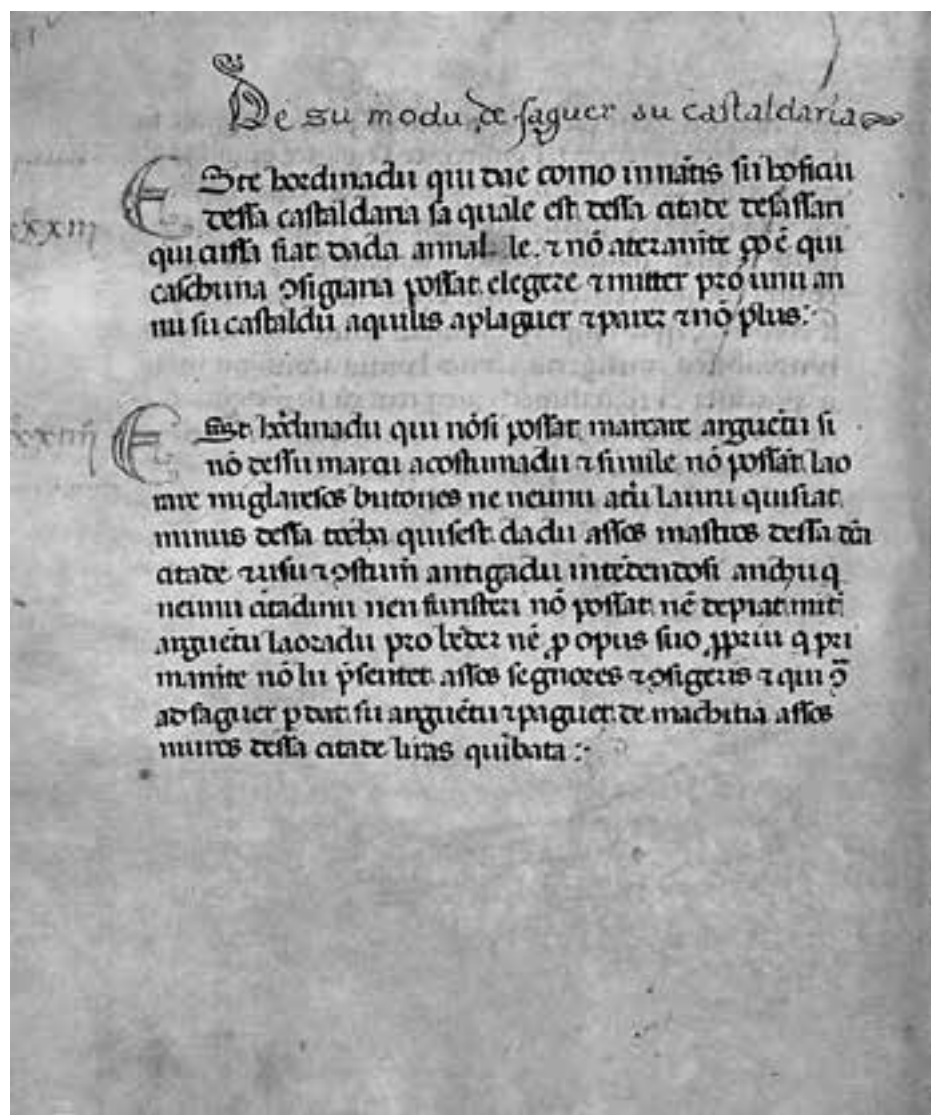 De su modu de faguer su castaldaria
ESte hordinadu qui dae como innātis su hoficiu
dessa castaldaria sa quale est dessa citade desassari
qui cussa siat dada annal le. ⁊ nō ateramēte ꝑ qui
caschuna ꝯsigiaria possat elegere ⁊ mitter pro unu an
nu su castaldu aquilis aplaguer ⁊ parer ⁊ nō plus:
xxxiiij
ESt hordinadu qui nōsi possat marcare arguētu si
nō dessu marcu acostumadu ⁊ simile nō possāt lao
rare miglaresos butones ne neunu atu lauru qui siat
minus dessa tocha quisest dadu assos mastros dessa dta
citade ⁊ usu ⁊ ꝯstum antigadu intēdendosi anchu q
neunu citadinu nen furisteri nō possat nē depiat mitt
arguētu laoradu pro leder nē ꝑ opus suo ꝓpriu q pri
mamēte nō lu p̄sentet assos segnores ⁊ ꝯsigeris ⁊ qui ꝯ
ad faguer ꝑdat su arguētu ⁊ paguet de machitia assos
muros dessa citade liras quibata :